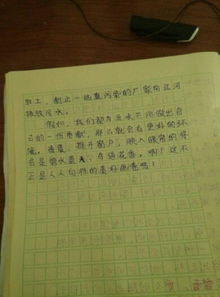 壮工,制止一些重污染的厂家向江河
排放污水。
假如,我们都为五水共治做出自
己的一份贡献,那么就会有更好的环
境。清晨,推开窗户,映入眼帘的将
会是绿水青山,鸟语花香。啊!这不
正是人人向往的美好画卷吗!